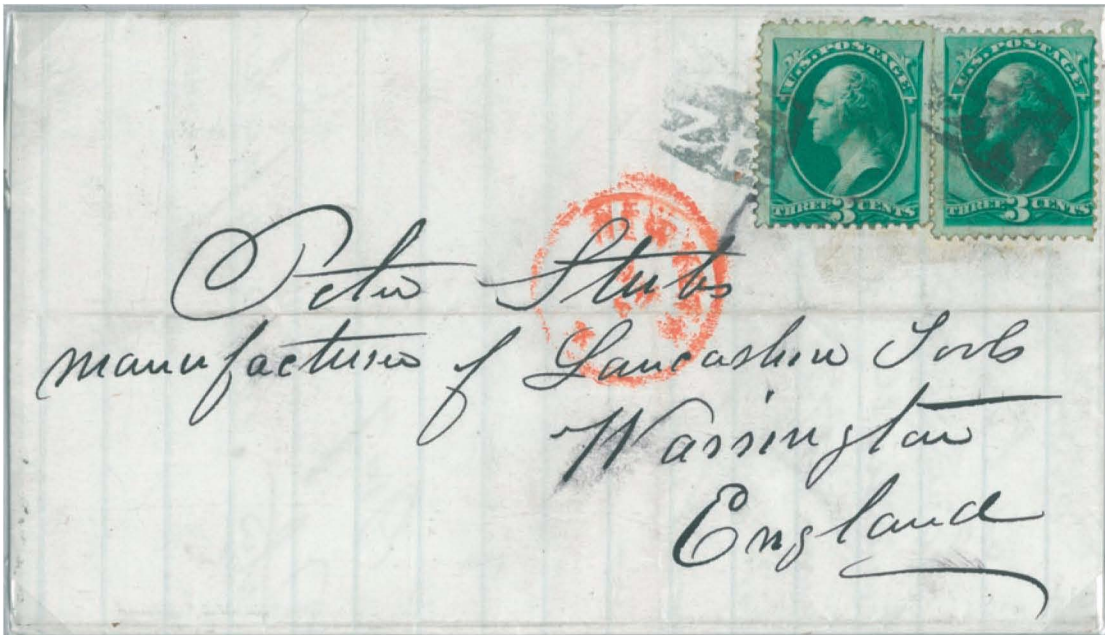 U.S. POSTAGE
THREE 3 CENTS
U.S. POSTAGE
THREE 3 CENTS
NEW
Peter Stubs
manufacturer of Lancashire Tools
Warrington
England